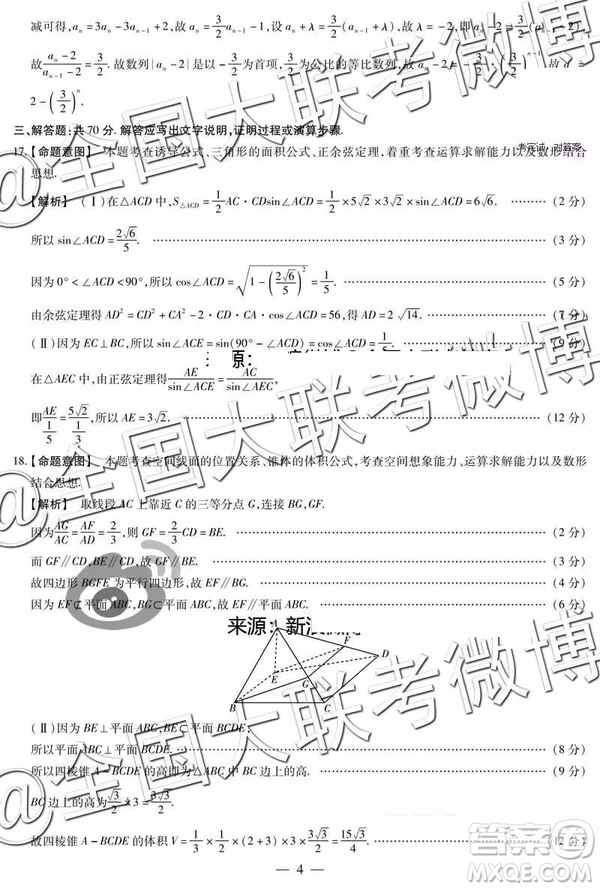 减可得, aₙ=3aₙ-3aₙ₋₁+2,故 aₙ=3/2 aₙ₋₁-1,设 aₙ+λ=3/2(aₙ₋₁+λ),即 aₙ=3/2 aₙ₋₁
故 aₙ-2=3/2(aₙ₋₁-2).故数列{aₙ-2}是以-3/2为首项,3/2为公比的等比数列,故 aₙ-2=
2-(3/2)ⁿ.
三、解答题:共70分.解答应写出文字说明,证明过程或演算步骤.
17.【命题意图】 本题考查诱导公式、三角形的面积公式、正余弦定理,着重考查运算求解能力以及数形结合
思想.
【解析】 (Ⅰ)在△ACD中,S△ACD=1/2 AC·CDsin∠ACD=1/2×5√2×3√2×sin∠ACD=6√6. (2分)
所以 sin∠ACD=2√6/5. (3分)
因为0°<∠ACD<90°,所以 cos∠ACD=√(1-(2√6/5)²)=1/5. (5分)
由余弦定理得 AD²=CD²+CA²-2·CD·CA·cos∠ACD=56,得 AD=2√14. (7分)
(Ⅱ)因为 EC⊥BC,所以 sin∠ACE=sin(90°-∠ACB)=cos∠ACB= (9分)
在△AEC中,由正弦定理得 AE/sin∠ACE=AC/sin∠AEC,
即 AE/(1/5)=5√2/(1/3),所以 AE=3√2. (12分)
18.【命题意图】 本题考查空间线面的位置关系、锥体的体积公式,考查空间想象能力、运算求解能力以及数形
结合思想.
【解析】 取线段 AC上靠近 C的三等分点 G,连接 BG,GF.
因为 AG/AC=AF/AD=2/3,则 GF=2/3 CD=BE. (2分)
而 GF∥CD,BE∥CD,故 GF∥BE. (3分)
故四边形 BGFE为平行四边形,故 EF∥BG. (4分)
因为 EF⊄平面 ABC,BG⊂平面 ABC,故 EF∥平面 ABC. (6分)
来源:新浪微
A
F
D
E
G
B
C
(Ⅱ)因为 BE⊥平面 ABC,BE⊂平面 BCDE,
所以平面 ABC⊥平面 BCDE, (8分)
所以四棱锥 A-BCDE的高即为△ABC中 BC边上的高. (9分)
BC边上的高为 √3/2×3=3√3/2.
故四棱锥 A-BCDE的体积 V=1/3×1/2×(2+3)×3×3√3/2=15√3/4. (12分)
— 4 —
@全国大联考微博
答案圈